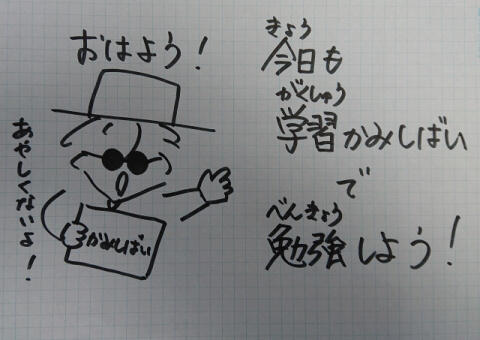 おはよう！
あやしくないよ！
かみしばい
きょう
今日も
がくしゅう
学習かみしばい
で
べんきょう
勉強しよう！